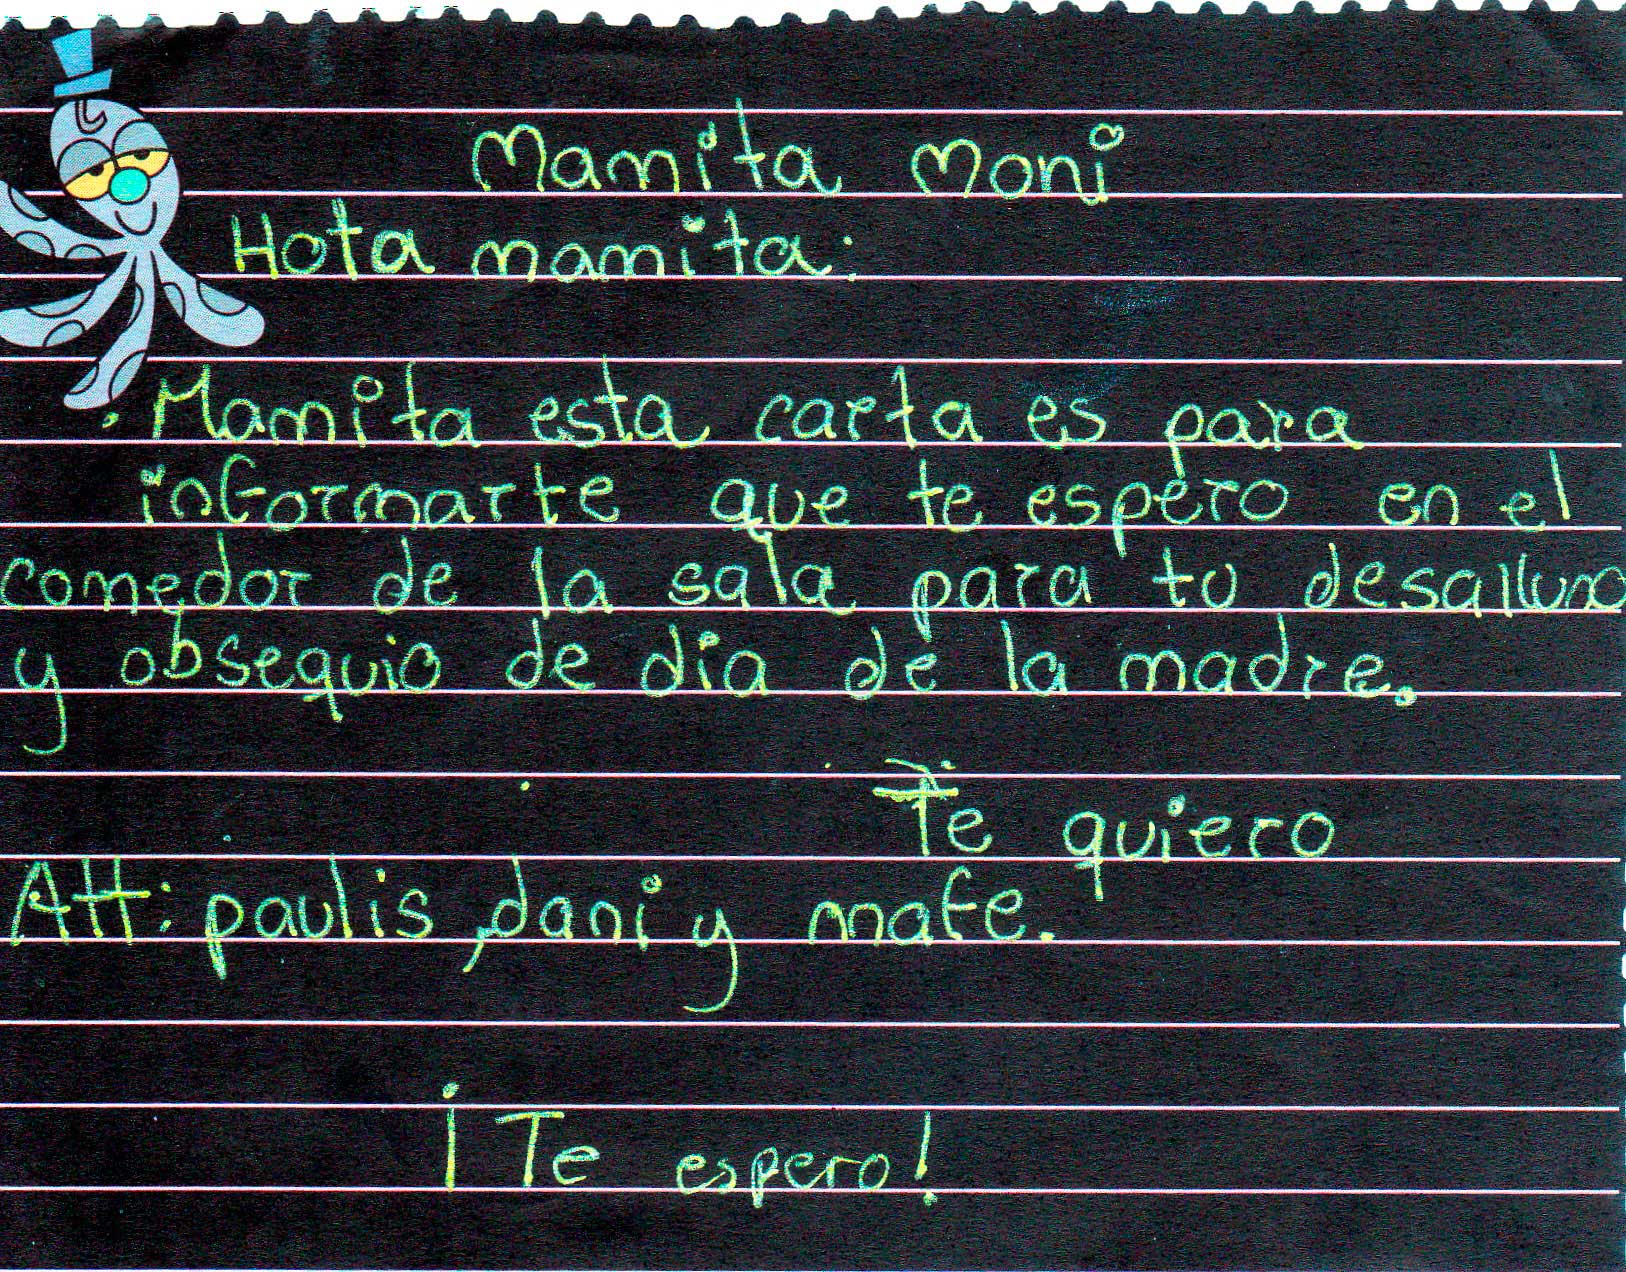 Mamita Moni
Hota mamita:
Mamita esta carta es para
informarte que te espero en el
comedor de la sala para tu desalluno
y obsequio de dia de la madre.
Te quiero
Att: paulis, dani y mafe.
¡Te espero!